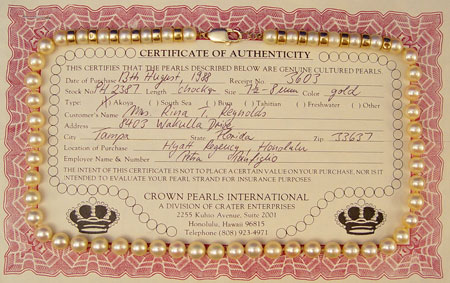 CERTIFICATE OF AUTHENTICITY
THIS CERTIFIES THAT THE PEARLS DESCRIBED BELOW ARE GENUINE CULTURED PEARLS
Date of Purchase 13th August, 1988 Receipt No. 3603
Stock No. PH 2387 Length chocker Size 7½-8mm Color gold
Type: Akoya South Sea Biwa Tahitian Freshwater Other
Customer's Name Mrs. Rina T. Reynolds
Address 8403 Wakulla Drive
City Tampa State Florida Zip 33637
Location of Purchase Hyatt Regency, Honolulu
Employer Name & Number
THE INTENT OF THIS CERTIFICATE IS NOT TO PLACE A CERTAIN VALUE ON YOUR PURCHASE, NOR IS IT
INTENDED TO EVALUATE YOUR PEARL STRAND FOR INSURANCE PURPOSES.
CROWN PEARLS INTERNATIONAL
A DIVISION OF CRATER ENTERPRISES
2255 Kuhio Avenue, Suite 2001
Honolulu, Hawaii 96815
Telephone (808) 923-4971